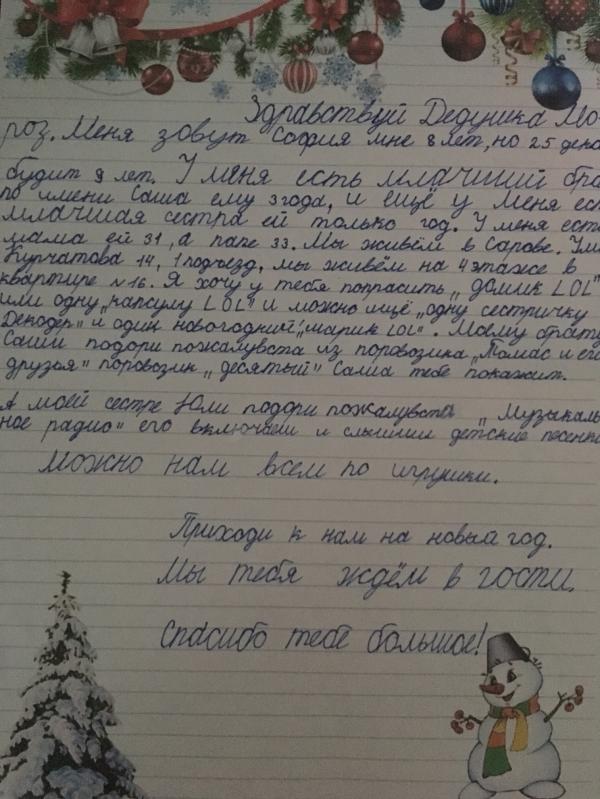 Здравствуй Дедушка Мо-
роз. Меня зовут София мне 8 лет, но 25 дека
будит 9 лет. У меня есть млачший бра
по имени Саша ему 3 года, и ещё у меня ес
млачшая сестра ей только год. У меня ест
мама ей 31, а папе 33. Мы живём в Сарове. Ули
Курчатова 14, 1 подъезд, мы живём на 4 этаже в
квартире №16. Я хочу у тебя попрасить „домик LOL"
или одну „капсулу LOL" и можно ищё „одну сестричку
Декодер" и один новогодний „шарик LOL". Моему брату
Саши подори пожалувста из поровозика „Томас и его
друзья" поровозик „десятый" Саша тебе покажит.
А моей сестре Юли подори пожалувста „Музыкаль
ное радио" его включаеш и слышиш детские песенк
Можно нам всем по игрушки.
Приходи к нам на новый год.
Мы тебя ждём в гости.
Спасибо тебе большое!